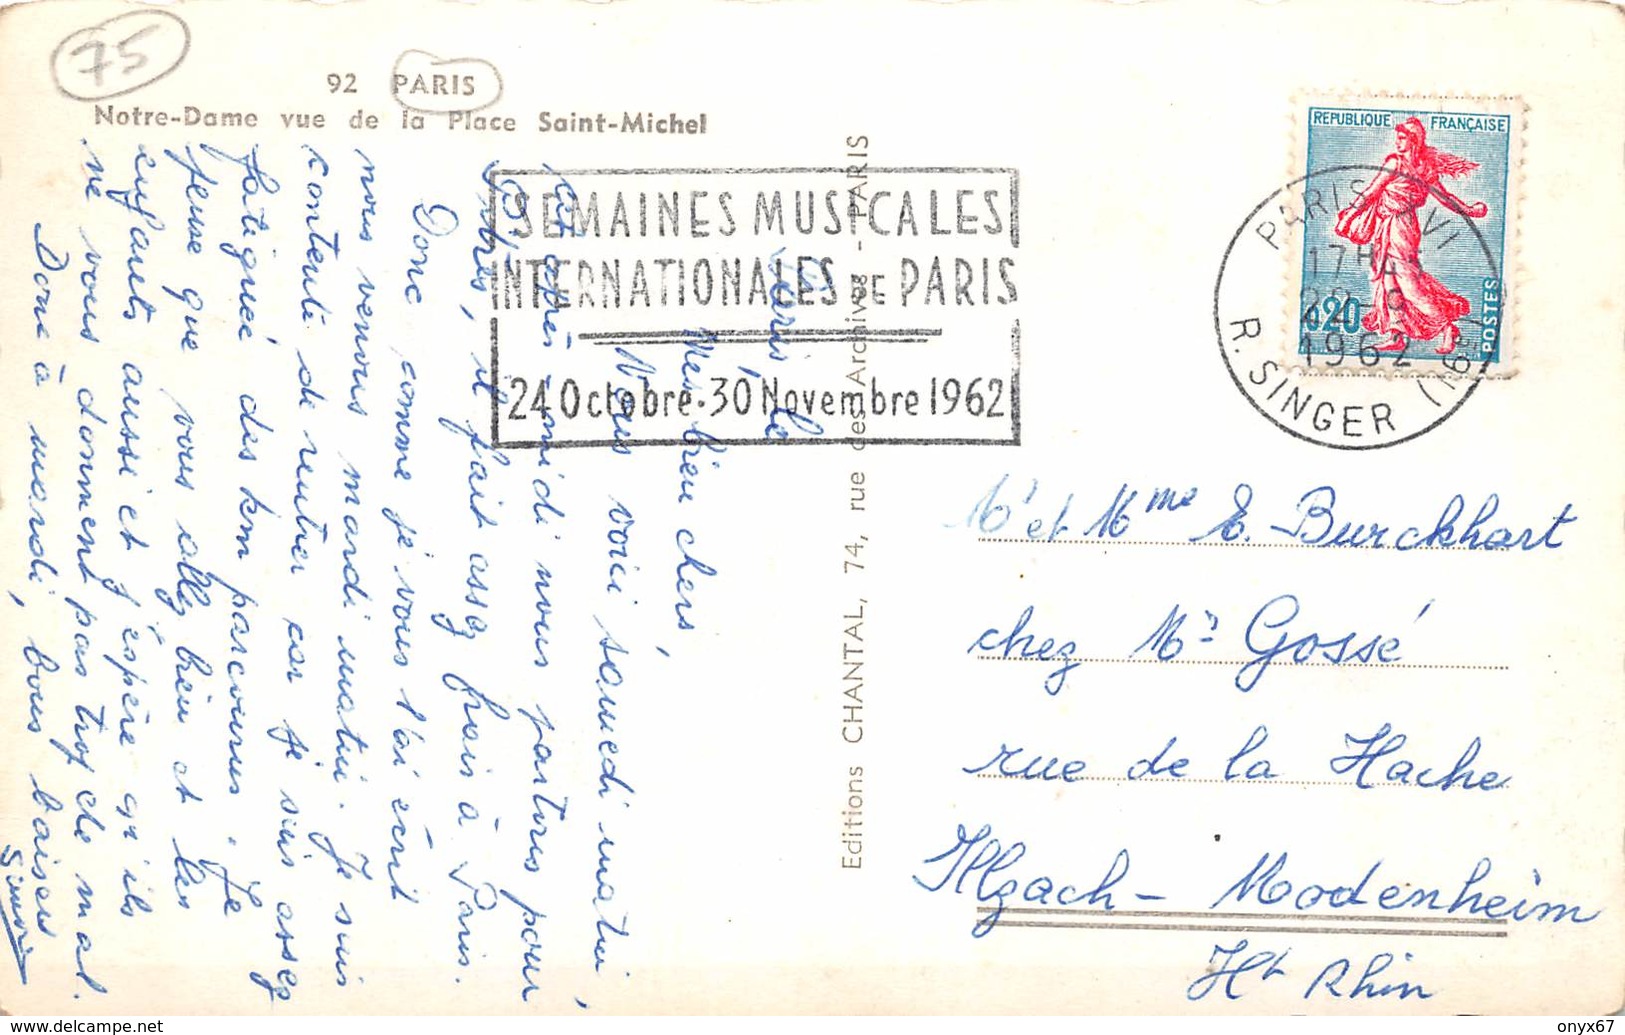 75
92 PARIS
Notre-Dame vue de la Place Saint-Michel
SEMAINES MUSICALES
INTERNATIONALES DE PARIS
24 Octobre - 30 Novembre 1962
REPUBLIQUE FRANÇAISE
0,20
POSTES
PARIS XVI
17H
22-9
1962
R. SINGER (16E)
Editions CHANTAL, 74, rue des Archives - PARIS
Paris, le
Mes bien chers,
Nous voici samedi matin,
cet après-midi nous partons pour
Bitres, il fait assez frais à Paris.
Donc comme je vous l'ai écrit
nous venons mardi matin. Je suis
contente de rentrer car je suis assez
fatiguée des km parcourus. Je
pense que vous allez bien et les
enfants aussi et j'espère qu'ils
ne vous donnent pas trop de mal.
Donc à mardi, bons baisers
Simone
Mr et Mme E. Burckhart
chez Mr Gossé
rue de la Hache
Illzach - Modenheim
Ht Rhin
www.delcampe.net
onyx67